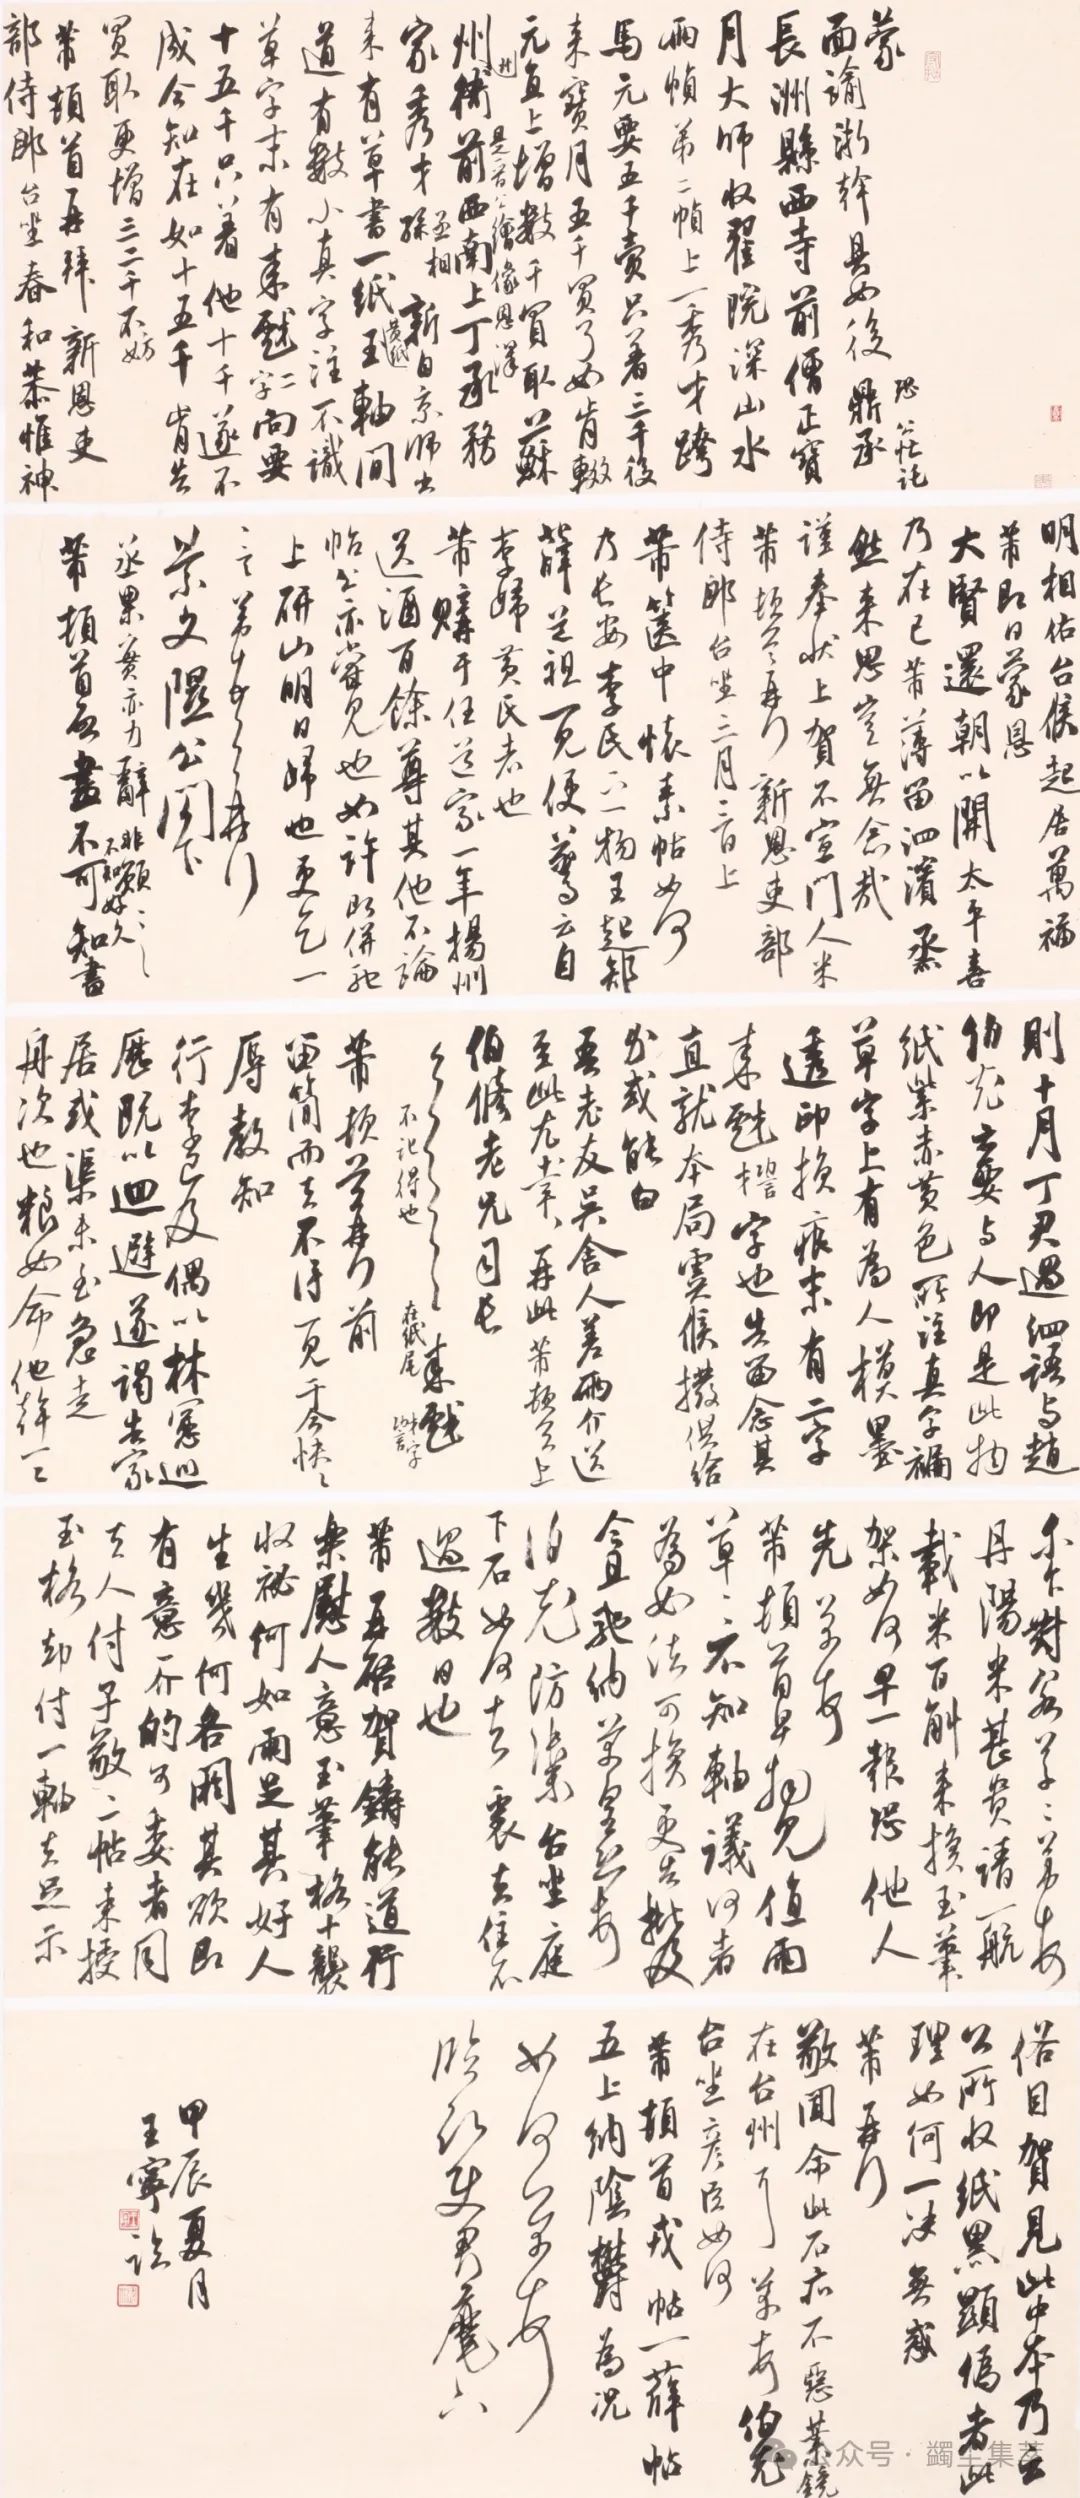 蒙
面諭浙幹具如後
恐公莊託
鼎承
長洲縣西寺前僧正寶
月大師收翟院深山水
兩幀第二幀上一秀才跨
馬元要五千賣只著三千後
來寶月五千買了如肯輟
元直上增數千買取蘇
州衙前西南上丁承務
是晉公繪像恩澤
家秀才孫
丞相
新自京師出
來有草書一紙玉軸間
黃紙
道有數小真字注不識
草字末有來戲二字向要
十五千只著他十千遂不
成今知在如十五千肯告
買取更增三二千不妨
芾頓首再拜 新恩吏
部侍郎台坐春和恭惟神
明相佑台候起居萬福
芾即日蒙恩
大賢還朝以開太平喜
乃在已芾薄留泗濱烝
然來思豈無念哉
謹奉狀上賀不宣門人米
芾頓首再拜 新恩吏部
侍郎台坐三月三日上
芾篋中懷素帖如何
乃長安李氏之物王起
薛道祖一見便驚云自
李歸黃氏者也
芾購于任道家一年揚州
送酒百餘尊其他不論
帖公亦嘗見也如許即併馳
上研山明日歸也更乞一
言芾頓首再拜
景文隰公閣下
丞果蕒亦力辭非願
不知好久
芾頓首
則十月丁君過泗語與趙
伯充云要與人即是此物
紙紫赤黃色所注真字褊
草字上有為人模墨
透印損痕末有二字
來戲字也告留念其
直就本局虞候撥供給
或能白
吾老友吳舍人差兩介送
至此尤幸再此芾頓首上
伯脩老兄司長
來戲
不記得也
在紙尾
芾頓首再拜前
留簡而去不得一見于今怏怏
辱教知
行李已及偶以林憲巡
歷既以迴避遂謁告家
居或渠未至急走
舟次也粮如命他幹一一
丹陽米甚貴請一航
載米百斛來換玉筆
架如何早一報恐他人
先
芾頓首早拜見值雨
草草不知軸議何者
為如法可換更告批及
伯充防禦台坐
下石如何者裹去住不
過數日也
芾再啟賀鑄能道行
樂慰人意玉筆格十襲
收祕何如兩足其好人
生幾何各閼其欲即
有意一介的可委者同
去人付子敬二帖來授
玉格却付一軸去足示
俗目賀見此中本乃云
公所收紙黑顯偽者此
理如何一決無惑
芾再拜
敬聞命此石亦不惡業鏡
在台州
台坐彥臣如何
伯充
芾頓首戎帖一薛帖
五上納陰鬱為況
如何
臨欣使君麾下
甲辰夏月
王寧臨
公众号·蠲主集萃